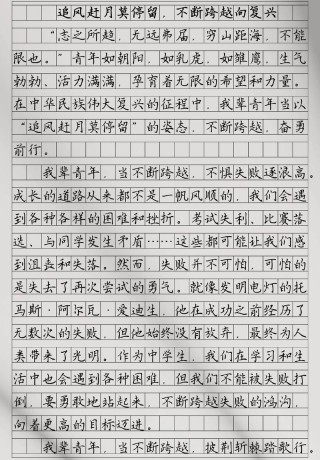 追风赶月莫停留，不断跨越向复兴
“志之所趋，无远弗届，穷山距海，不能
限也。”青年如朝阳，如乳虎，如雏鹰，生气
勃勃、活力满满，孕育着无限的希望和力量。
在中华民族伟大复兴的征程中，我辈青年当以
“追风赶月莫停留”的姿态，不断跨越，奋勇
前行。
我辈青年，当不断跨越，不惧失败逐浪高。
成长的道路从来都不是一帆风顺的，我们会遇
到各种各样的困难和挫折。考试失利、比赛落
选、与同学发生矛盾……这些都可能让我们感
到沮丧和失落。然而，失败并不可怕，可怕的
是失去了再次尝试的勇气。就像发明电灯的托
马斯·阿尔瓦·爱迪生，他在成功之前经历了
无数次的失败，但他始终没有放弃，最终为人
类带来了光明。作为中学生，我们在学习和生
活中也会遇到各种困难，但我们不能被失败打
倒，要勇敢地站起来，不断跨越失败的鸿沟，
向着更高的目标迈进。
我辈青年，当不断跨越，披荆斩棘踏歌行。